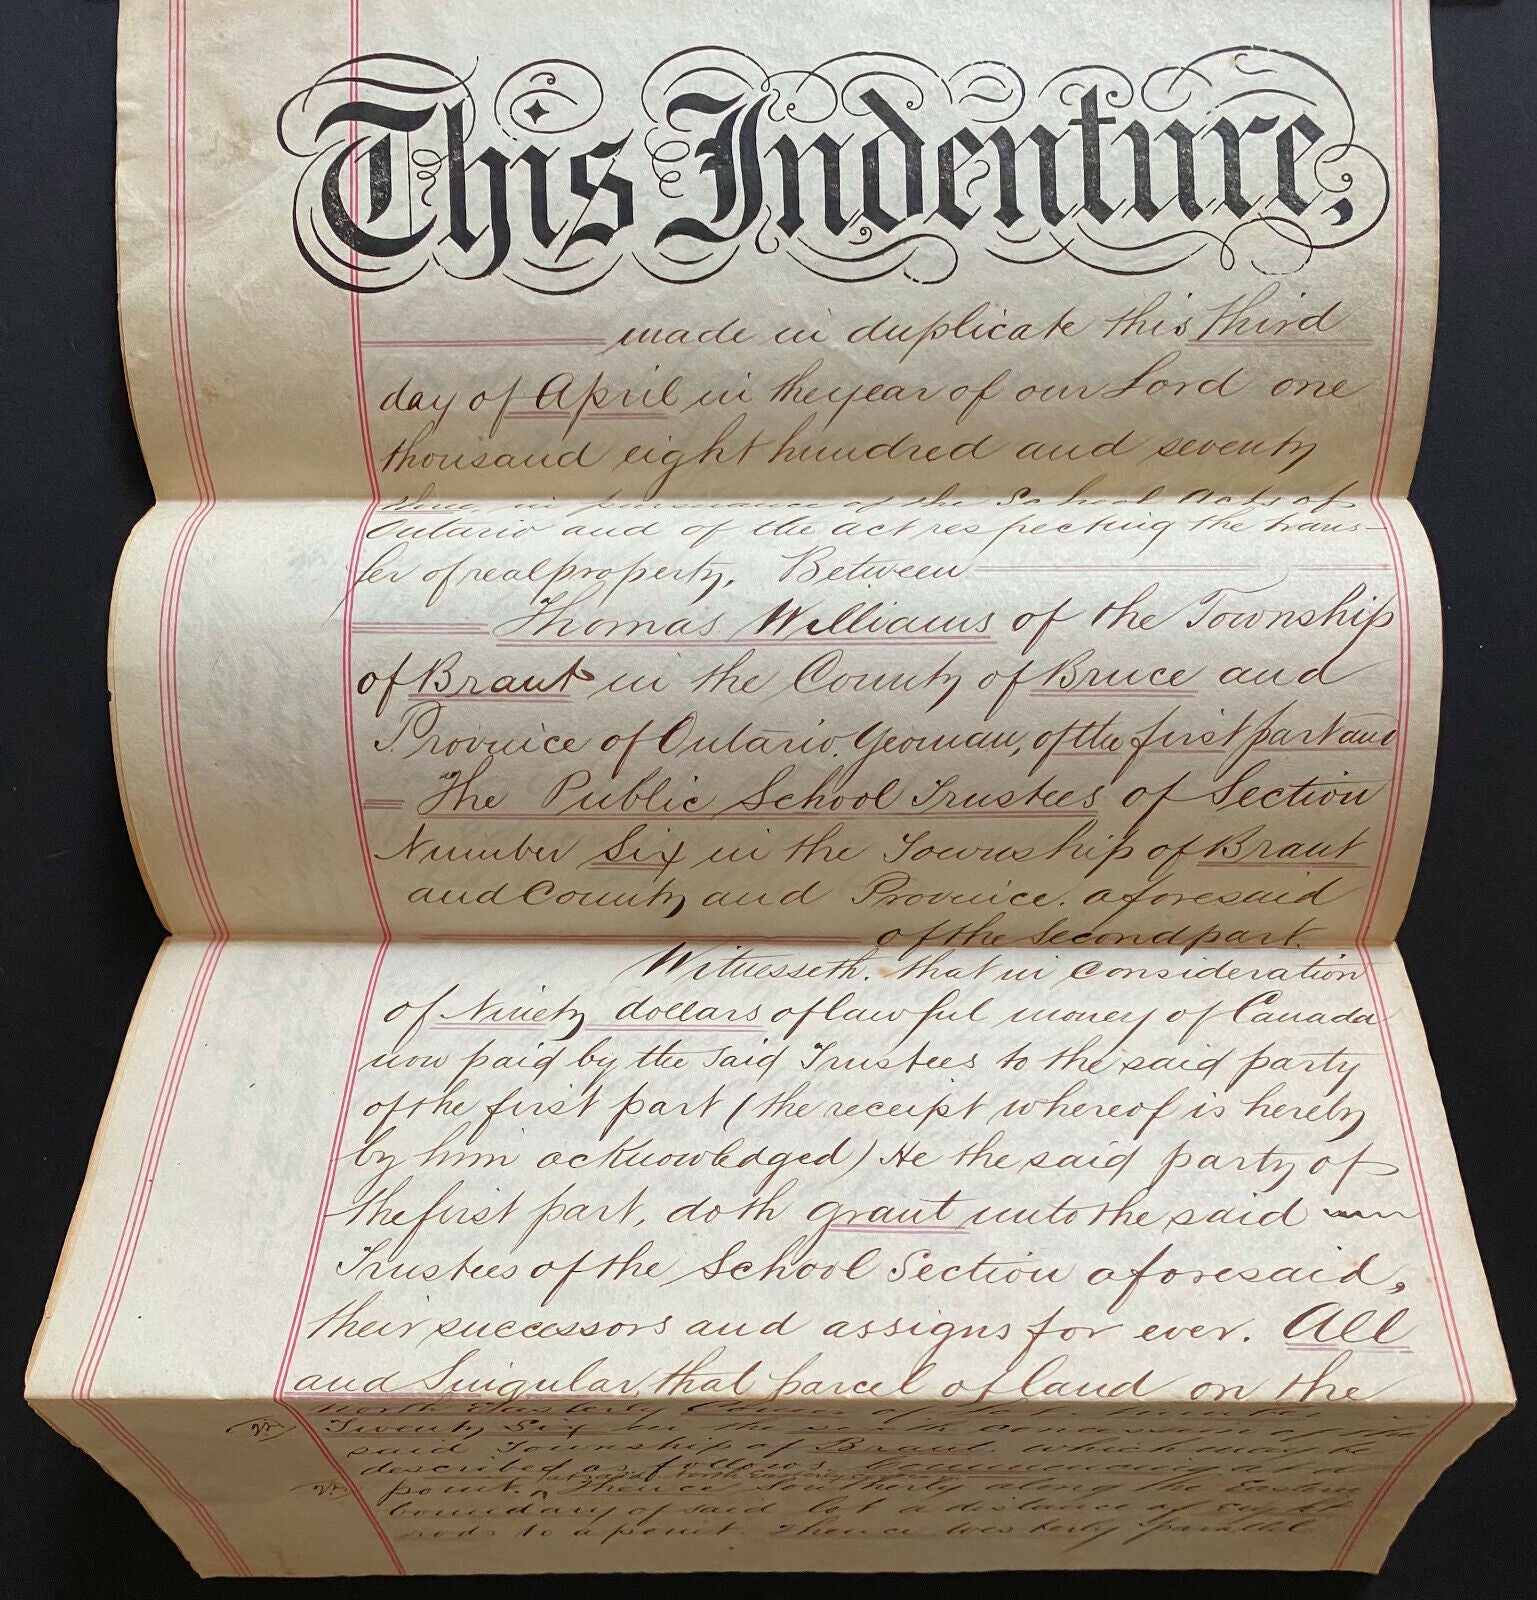 This Indenture,
made in duplicate this third
day of April in the year of our Lord one
thousand eight hundred and seventy
three in pursuance of the School Acts of
Ontario and of the act respecting the trans-
fer of real property. Between
Thomas Williams of the Township
of Brant in the County of Bruce and
Province of Ontario. Yeoman, of the first part and
The Public School Trustees of Section
Number Six in the Township of Brant
and County and Province. aforesaid
of the Second part.
Witnesseth. that in consideration
of Ninety dollars of lawful money of Canada
now paid by the said Trustees to the said party
of the first part (the receipt whereof is hereby
by him acknowledged) He the said party of
the first part, doth grant unto the said
Trustees of the School Section aforesaid,
their successors and assigns for ever. All
and Singular, that parcel of land on the
North Easterly Corner of Lot Number
Twenty Six in the concession of the
said Township of Brant. which may be
described as follows. Commencing at a
at said North Easterly
point. Thence Southerly along the Eastern
boundary of said lot a distance of Eight
rods to a point. Thence Westerly parallel